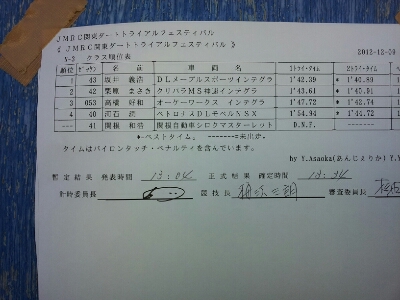 JMRC関東ダートトライアルフェスティバル
《 JMRC関東ダートトライアルフェスティバル 》
N-3 クラス順位表 2012-12-09
順位 ゼッケン 氏 名 車 両 名 1トライ・タイム 2トライ・タイム
1 43 坂井 義浩 DLメープルスポーツインテグラ 1'42.39 * 1'40.89
2 42 栗原 まさき クリハラMS神速インテグラ 1'43.61 * 1'40.91
3 053 高橋 好和 オーケーワークス インテグラ 1'47.72 * 1'42.74
4 40 河石 潤 NSX 1'54.94 * 1'44.72
--- 41 関根 和浩 関根自動車シロクマスターレット D.N.F. --------
*-ベストタイム。 --------=未出走。
タイムはパイロンタッチ・ペナルティを含んでいます。
by Y.Asaoka(あんじぇりか)
暫定結果 発表時間 13:04 正式結果 確定時間 13:34
計時委員長 競技長 審査委員長